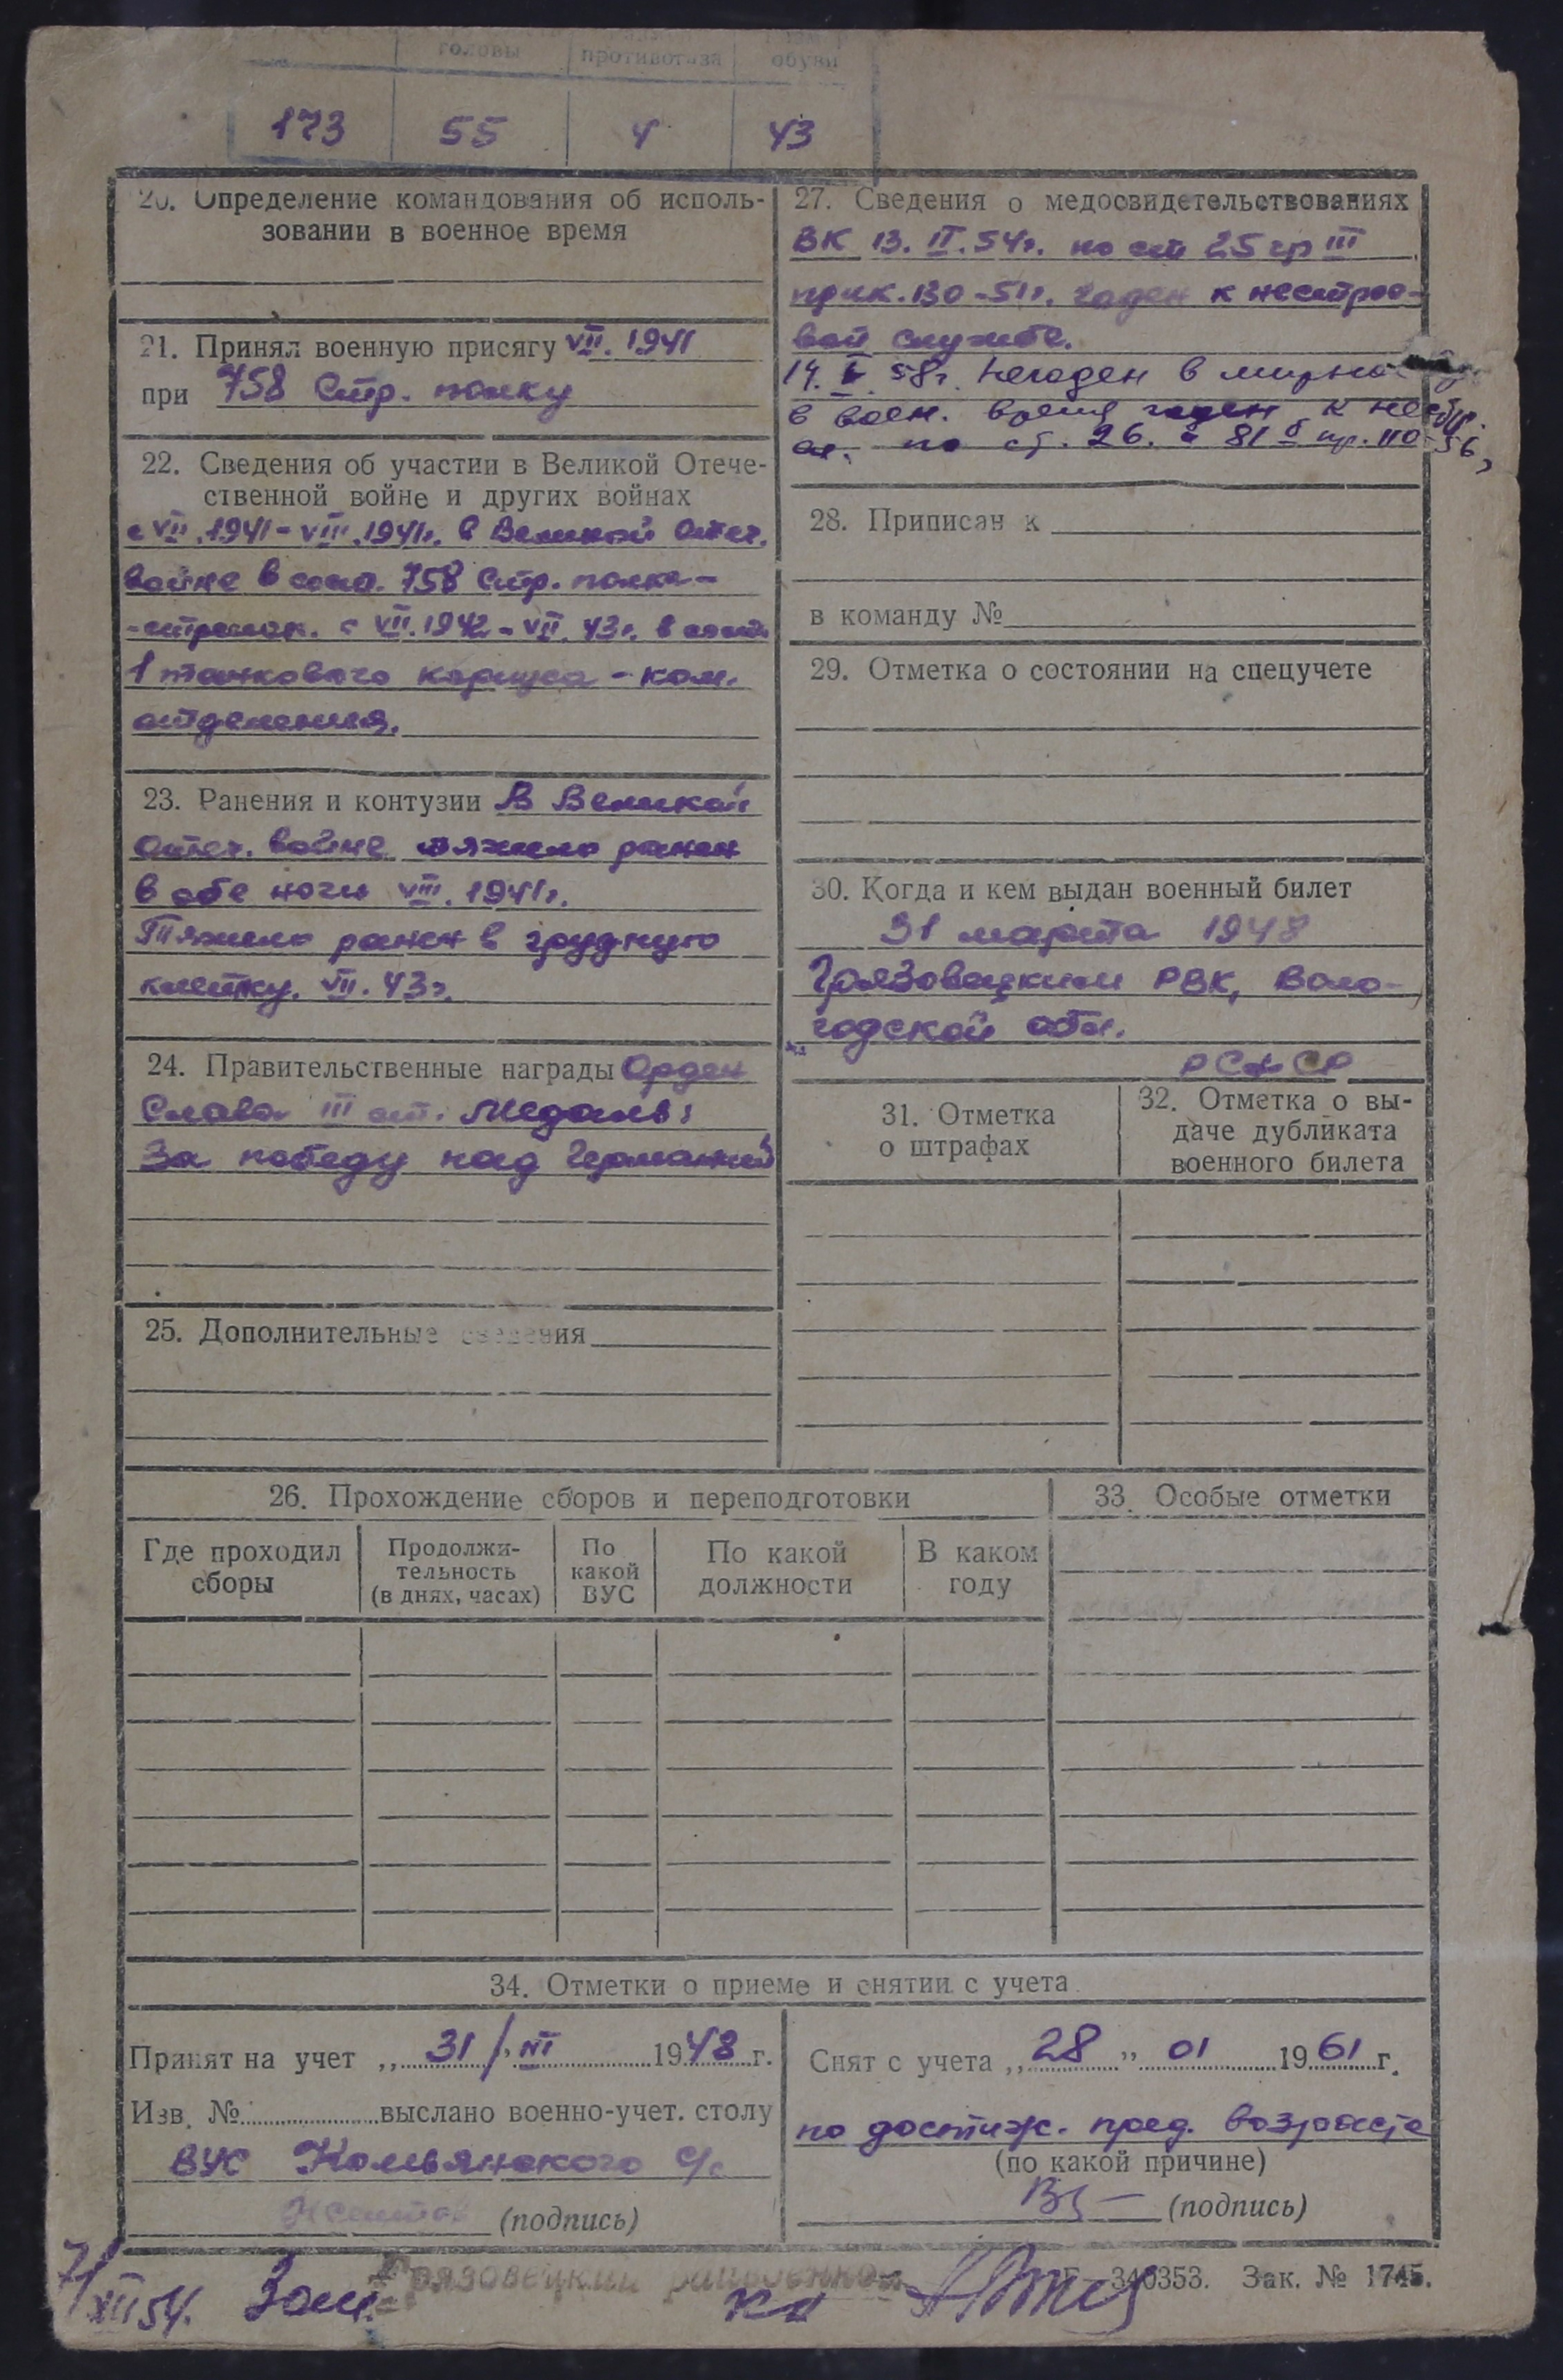 головы противогаза обуви
173 55 4 43
20. Определение командования об исполь-
зовании в военное время
21. Принял военную присягу VII. 1941
при 758 Стр. полку
22. Сведения об участии в Великой Отече-
ственной войне и других войнах
с VII.1941-VIII.1941г. в Великой Отеч.
войне в сост. 758 Стр. полка-
-стрелок. с VII.1942-VII.43г. в сост.
1 танкового корпуса - ком.
отделения.
23. Ранения и контузии В Великой
Отеч. войне тяжело ранен
в обе ноги VIII.1941г.
Тяжело ранен в грудную
клетку. VII.43г.
24. Правительственные награды Орден
Слава III ст. Медаль:
За победу над Германией
25. Дополнительные сведения
27. Сведения о медосвидетельствованиях
ВК 13.II.54г. по ст 25 гр III
прик.130-51г. годен к нестрое-
вой службе.
14. 58г. Негоден в мирное
в воен. время годен к нестр.
по ст. 26. а 81 б пр. 110-56,
28. Приписан к
в команду №
29. Отметка о состоянии на спецучете
30. Когда и кем выдан военный билет
31 марта 1948
Грязовецким РВК, Воло-
годской обл.
РСФСР
31. Отметка
о штрафах
32. Отметка о вы-
даче дубликата
военного билета
26. Прохождение сборов и переподготовки
Где проходил
сборы
Продолжи-
тельность
(в днях, часах)
По
какой
ВУС
По какой
должности
В каком
году
33. Особые отметки
34. Отметки о приеме и снятии с учета
Принят на учет „31/" III 1948 г.
Изв. № выслано военно-учет. столу
ВУС Комьянского с/с
(подпись)
Снят с учета „28" 01 1961 г.
по достиж. пред. возраста
(по какой причине)
(подпись)
7/XII 54. Зам. Грязовецкий райвоенком
340353. Зак. № 1745.